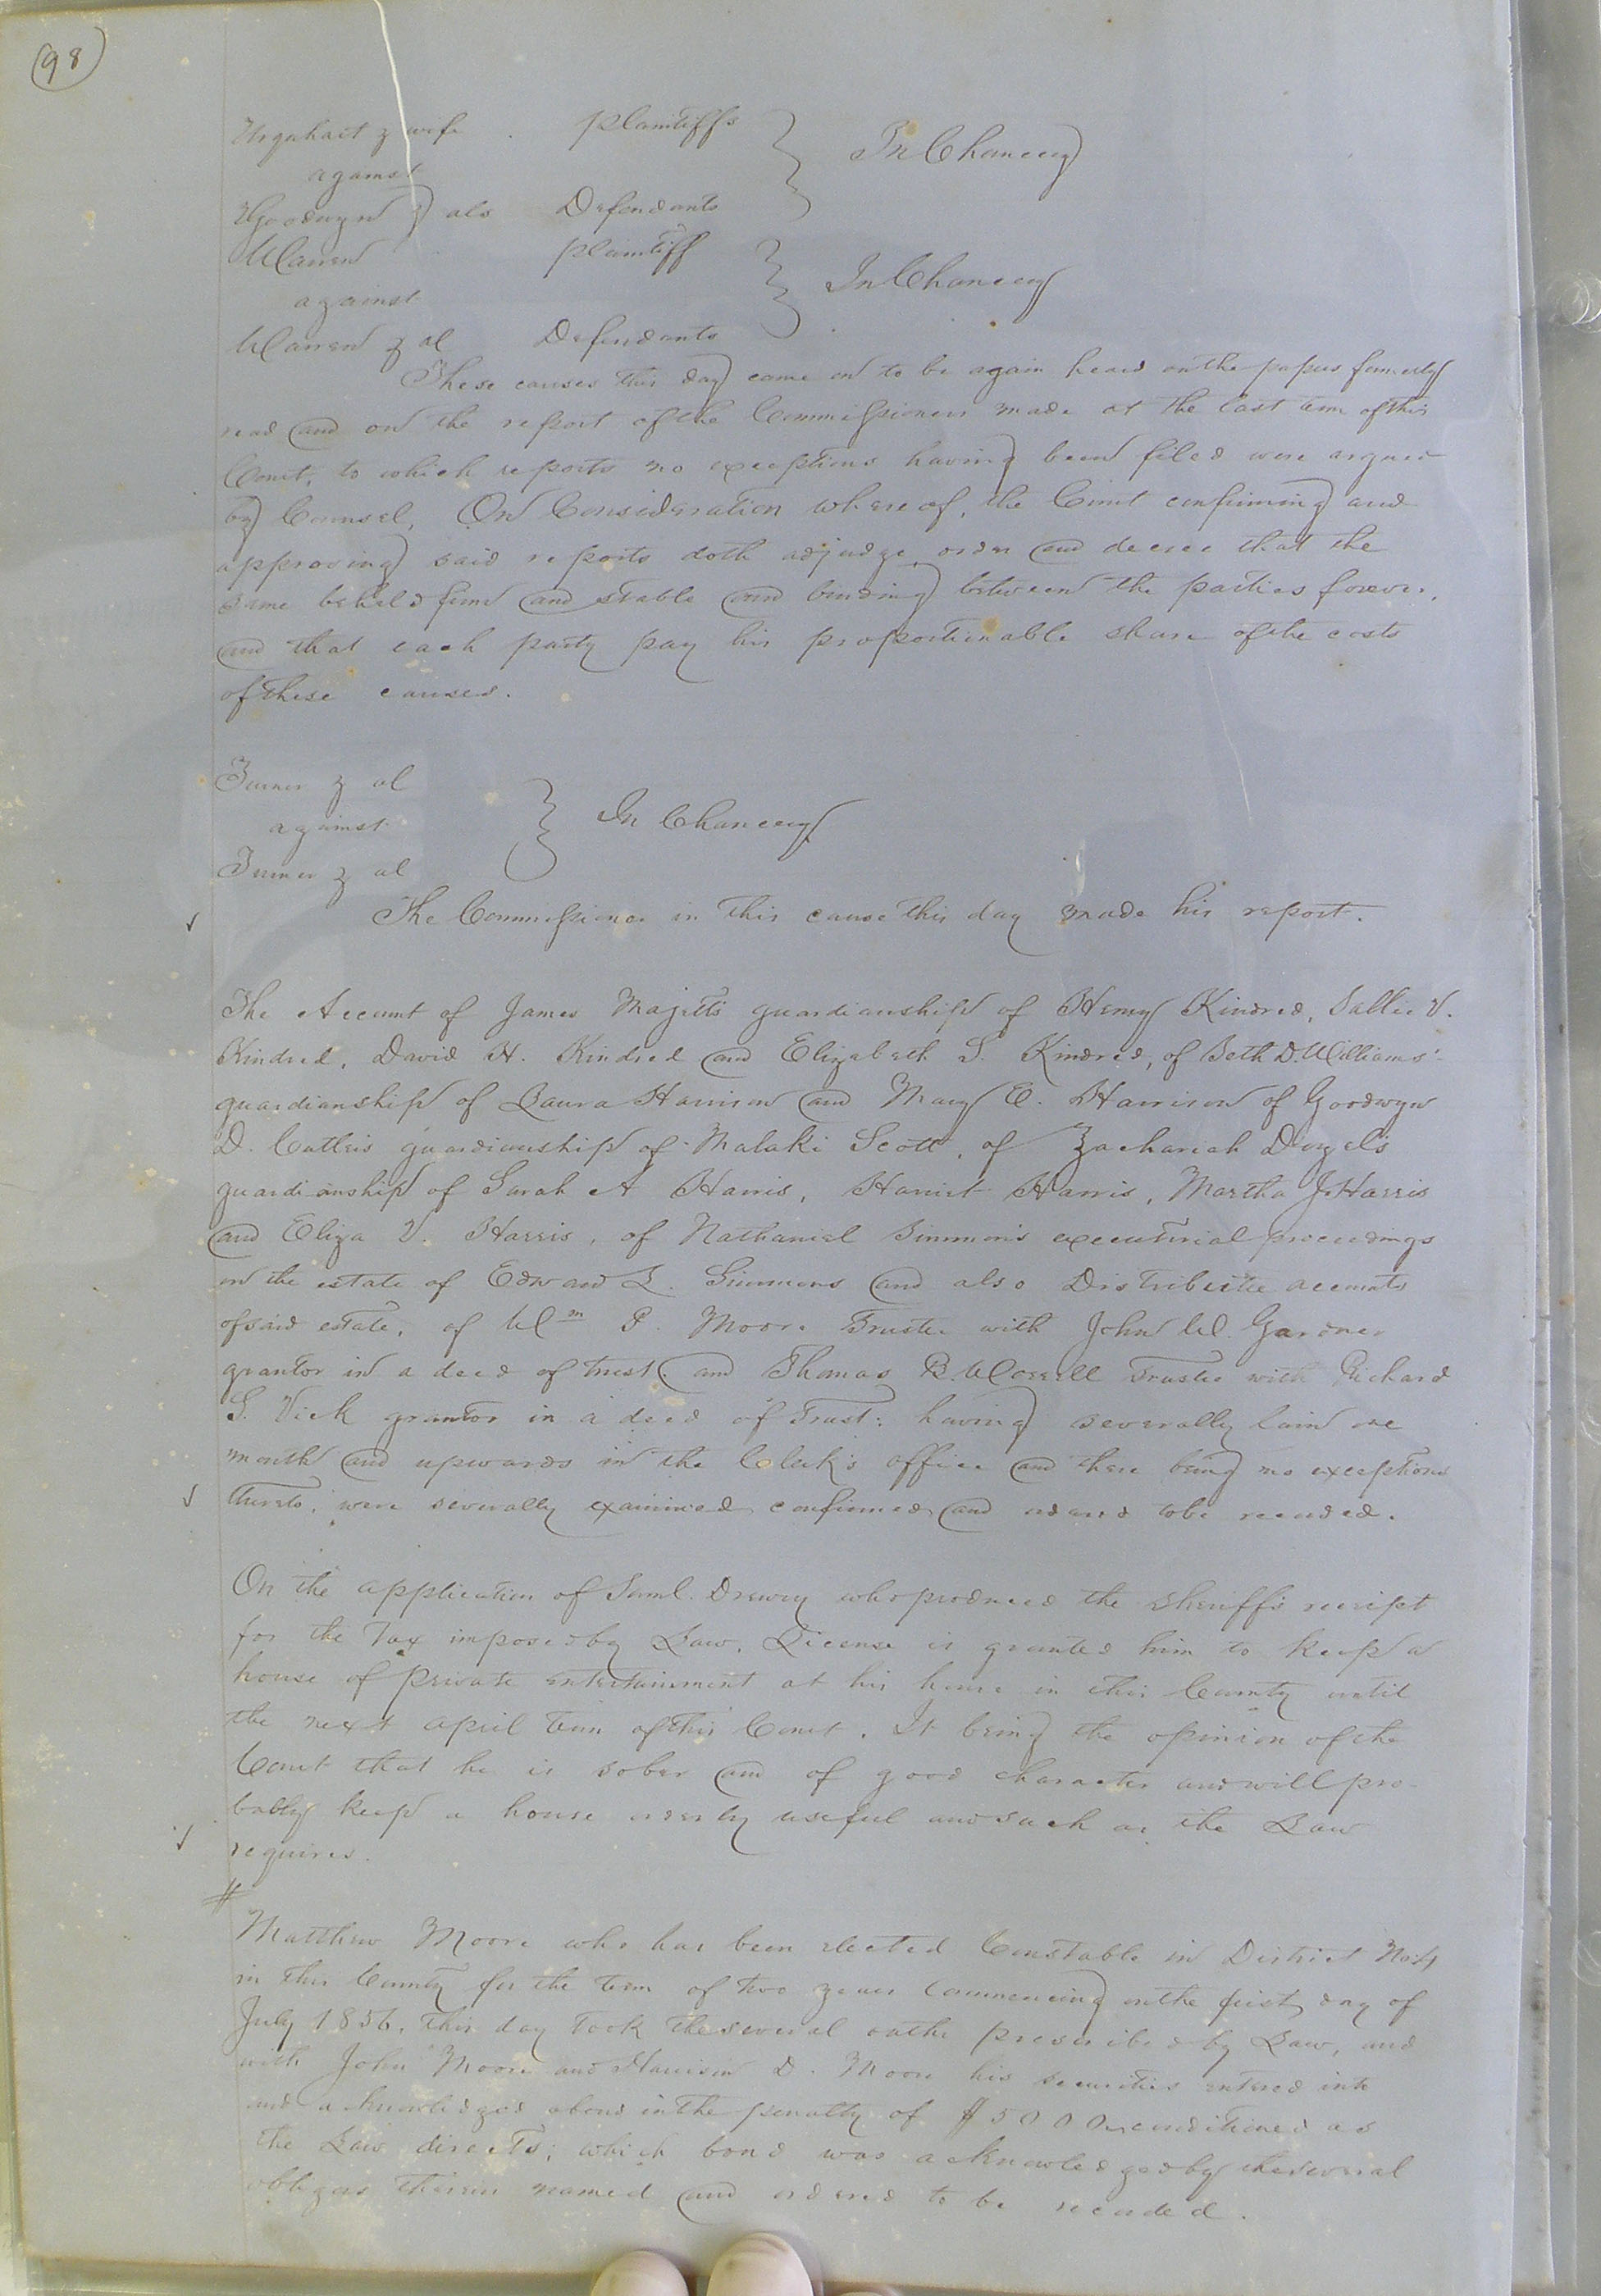 98
Urquhart & wife Plaintiffs
against } In Chancery
Goodwyn & als Defendants
Warren Plaintiff
against } In Chancery
Warren & al Defendants
These causes this day came on to be again heard on the papers formerly
read and on the report of the Commissioners made at the last term of this
Court, to which reports no exceptions having been filed were argued
by Counsel, On Consideration whereof, the Court confirming and
approving said reports doth adjudge order and decree that the
same be held firm and stable and binding between the parties forever,
and that each party pay his proportionable share of the costs
of these causes.
Turner & al
against } In Chancery
Turner & al
The Commissioner in this cause this day made his report.
The Account of James Majett's guardianship of Henry Kindred, Sallie V.
Kindred, David H. Kindred and Elizabeth S. Kindred, of Beth D. Williams'
guardianship of Laura Harrison and Mary E. Harrison of Goodwyn
D. Cutler's guardianship of Malaki Scott, of Zachariah Duzel's
guardianship of Sarah A Harris, Harriet Harris, Martha J. Harris
and Eliza V. Harris, of Nathaniel Simmon's executorial proceedings
on the estate of Edward L. Simmons and also Distributive accounts
of said estate, of Wm P. Moore Trustee with John W. Gardner
grantor in a deed of trust, and Thomas B. Worrell Trustee with Richard
S. Vick grantor in a deed of Trust: having severally lain one
month and upwards in the Clerk's office and there being no exceptions
thereto, were severally examined confirmed and ordered to be recorded.
On the application of Saml. Drewry who produced the Sheriff's receipt
for the Tax imposed by Law, License is granted him to keep a
house of private entertainment at his house in this County until
the next April term of this Court, It being the opinion of the
Court that he is sober and of good character and will pro-
bably keep a house orderly useful and such as the Law
requires.
#
Matthew Moore who has been elected Constable in District No 4
in this County for the term of two years commencing on the first day of
July 1856, this day took the several oaths prescribed by Law, and
with John Moore and Harrison D. Moore his securities entered into
and acknowledged a bond in the penalty of $5000 conditioned as
the Law directs; which bond was acknowledged by the several
obligors therein named and ordered to be recorded.